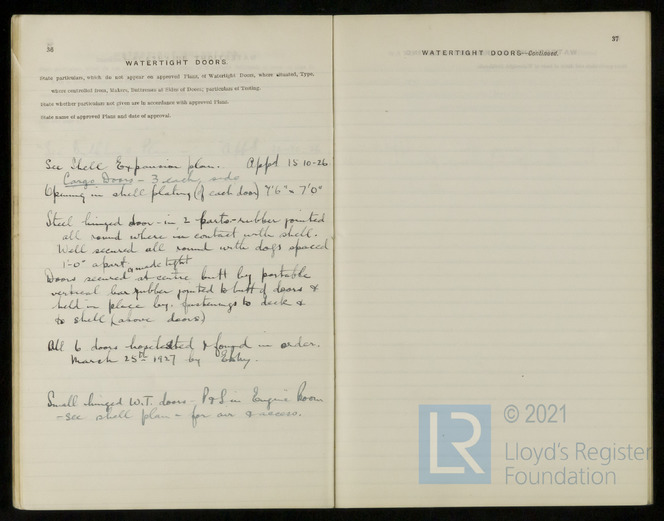 36
WATERTIGHT DOORS.
State particulars, which do not appear on approved Plans, of Watertight Doors, where situated, Type,
where controlled from, Makers, Buttresses at Sides of Doors; particulars of Testing.
State whether particulars not given are in accordance with approved Plans.
State name of approved Plans and date of approval.
See Shell Expansion plan. Appd 15 10-26
Cargo Doors - 3 each side
Opening in shell plating (of each door) 7'6" x 7'0"
Steel hinged door - in 2 parts - rubber jointed
all round where in contact with shell.
Well secured all round with dogs spaced
1'-0" apart
& made tight
Doors secured at centre butt by portable
vertical bar rubber jointed to butt of doors &
held in place by fastenings to deck &
to shell (above doors)
All 6 doors hose tested & found in order.
March 25th 1927 by
Small hinged W.T. doors - P & S in Engine Room
- See shell plan - for air & access.
37
WATERTIGHT DOORS—Continued.
LR
© 2021
Lloyd's Register
Foundation